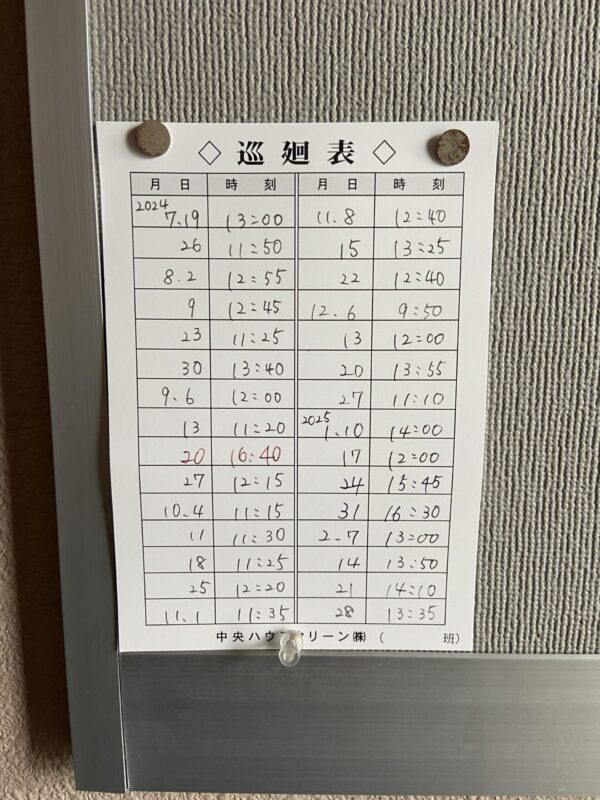 ◇ 巡廻表 ◇
月 日 時 刻 月 日 時 刻
2024 7.19 13:00 11.8 12:40
26 11:50 15 13:25
8.2 12:55 22 12:40
9 12:45 12.6 9:50
23 11:25 13 12:00
30 13:40 20 13:55
9.6 12:00 27 11:10
13 11:20 2025 1.10 14:00
20 16:40 17 12:00
27 12:15 24 15:45
10.4 11:15 31 16:30
11 11:30 2.7 13:00
18 11:25 14 13:50
25 12:20 21 14:10
11.1 11:35 28 13:35
中央ハウスクリーン㈱ ( 班)